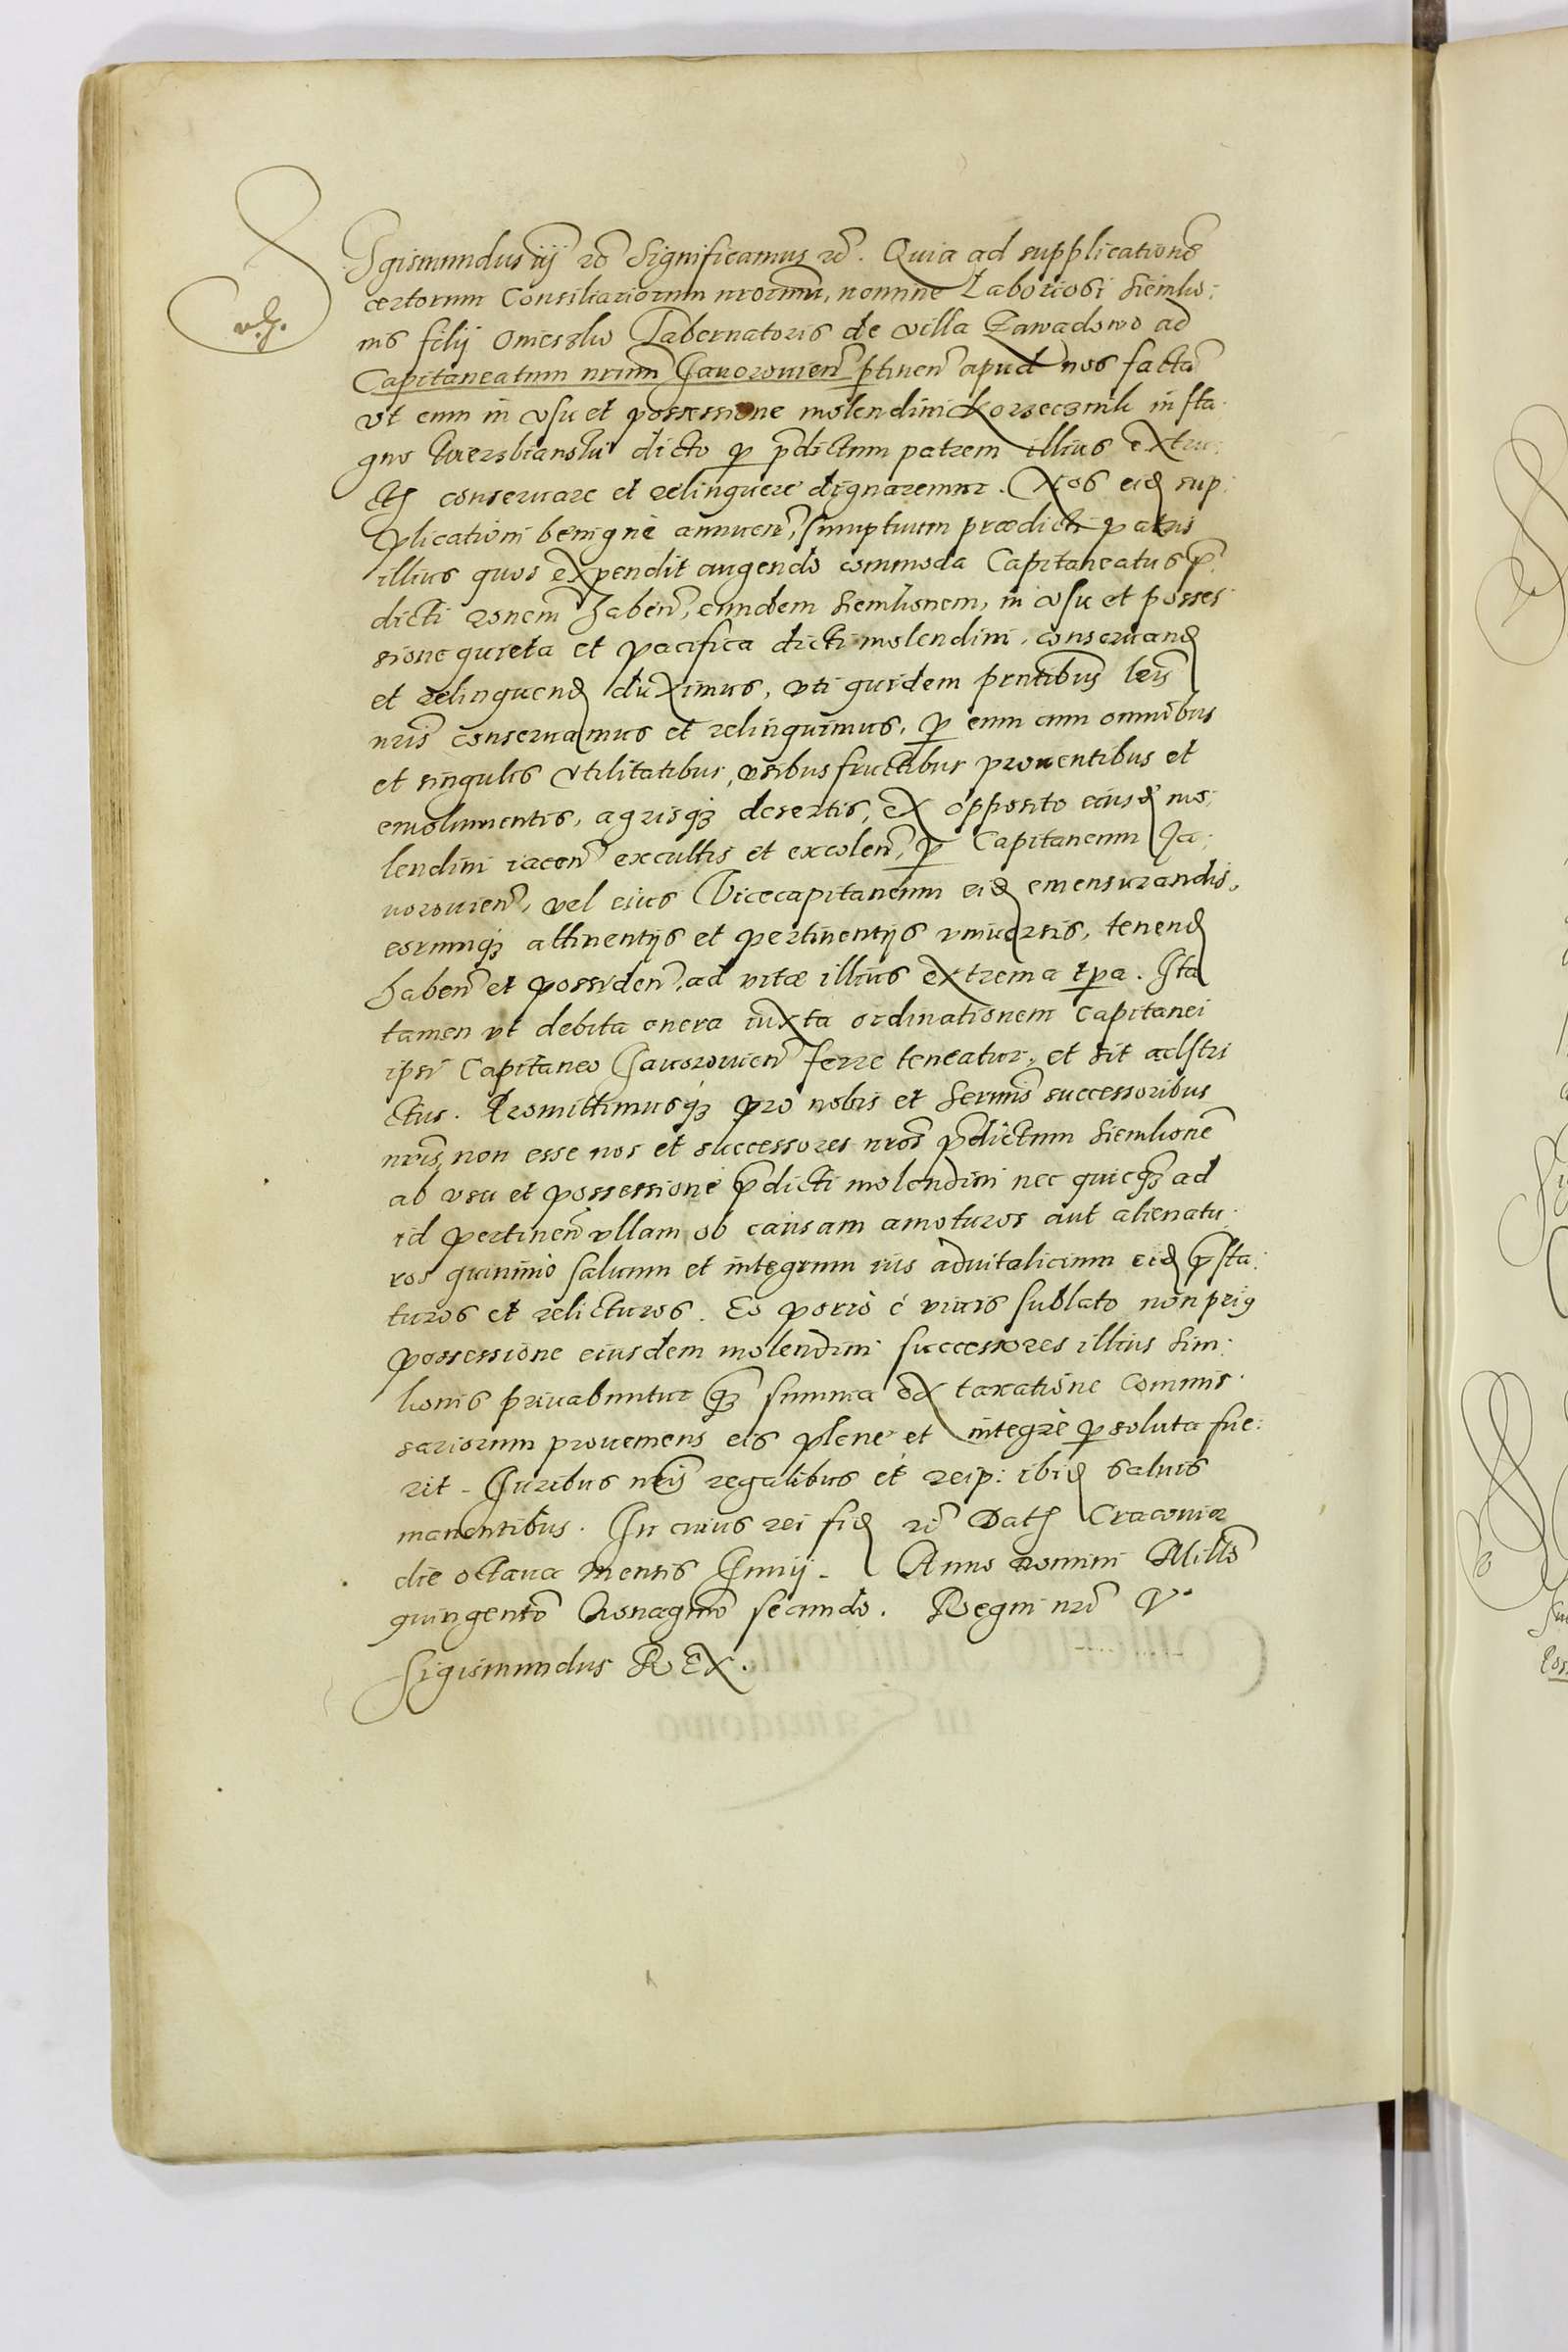 Sigismundus iij etc Significamus etc. Quia ad supplicationē
certorum Consiliariorum nrorum, nomine Laboriosi Siemio:
nis filij Omieszko Tabernatoris de villa Zawadowo ad
Capitaneatum nrum Jauorouien ptinen apud nos factā
vt eum in vsu et possessione molendini Korzecznik in sta:
gno dicto p pdictum patrem illius extru:
cti conseruare et relinquere dignaremur. Nos eid sup:
plicationi benignè annuen, sumptuum praedicti patris
illius quos expendit augendo commoda Capitaneatus p
dicti ronem haben, eundem Siemionem, in vsu et posses
sione quieta et pacifica dicti molendini, conseruand
et relinquend duximus, vti quidem pntibus lris
nris conseruamus et relinquimus, p eum cum omnibus
et singulis vtilitatibus, vsibusfructibus prouentibus et
emolumentis, agrisq desertis, ex opposito eiusd mo:
lendini iacen excultis et excolen, p Capitaneum Ja:
uorouien, vel eius Vicecapitaneum eid emensurandis,
eorumq attinentijs et pertinentijs vniuersis, tenend
haben et possiden, ad vitae illius extrema tpa. Ita
tamen vt debita onera iuxta ordinationem Capitanei
ipsi Capitaneo Jauorouien ferre teneatur, et sit adstri
ctus. Promittimusq pro nobis et Sermis successoribus
nris, non esse nos et successores nros pdictum Siemionē
ab vsu et possessione pdicti molendini nec quicq ad
id pertinen vllam ob causam amoturos aut alienatu:
ros quinimo saluum et integrum ius aduitalicium eid psta:
turos et relicturos. Eo porrò è viuis sublato non prig
possessione eiusdem molendini successores illius Sim:
lionis priuabuntur q summa ex taxatione Commis:
sariorum proueniens eis plene et integrè psoluta fue:
rit. Juribus nris regalibus et reip: ibid saluis
manentibus. In cuius rei fid etc Dat Cracouiae
die octaua mensis Junij. Anno Domini Millō
quingentō Nonagmo secundo. Regni nri V.
Sigismundus REX.